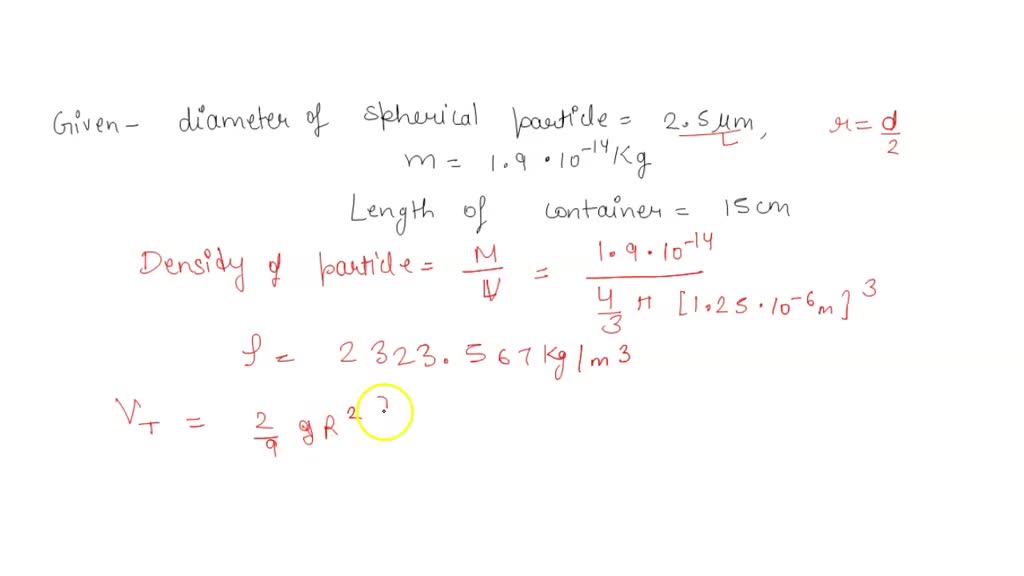 Given- diameter of spherical particle = 2.5 μm, r = d/2
m = 1.9 · 10^-14 Kg
Length of container = 15 cm
Density of particle = M/V = 1.9 · 10^-14 / 4/3 π [1.25 · 10^-6 m]^3
ρ = 2323.567 kg/m^3
V_T = 2/9 g R^2